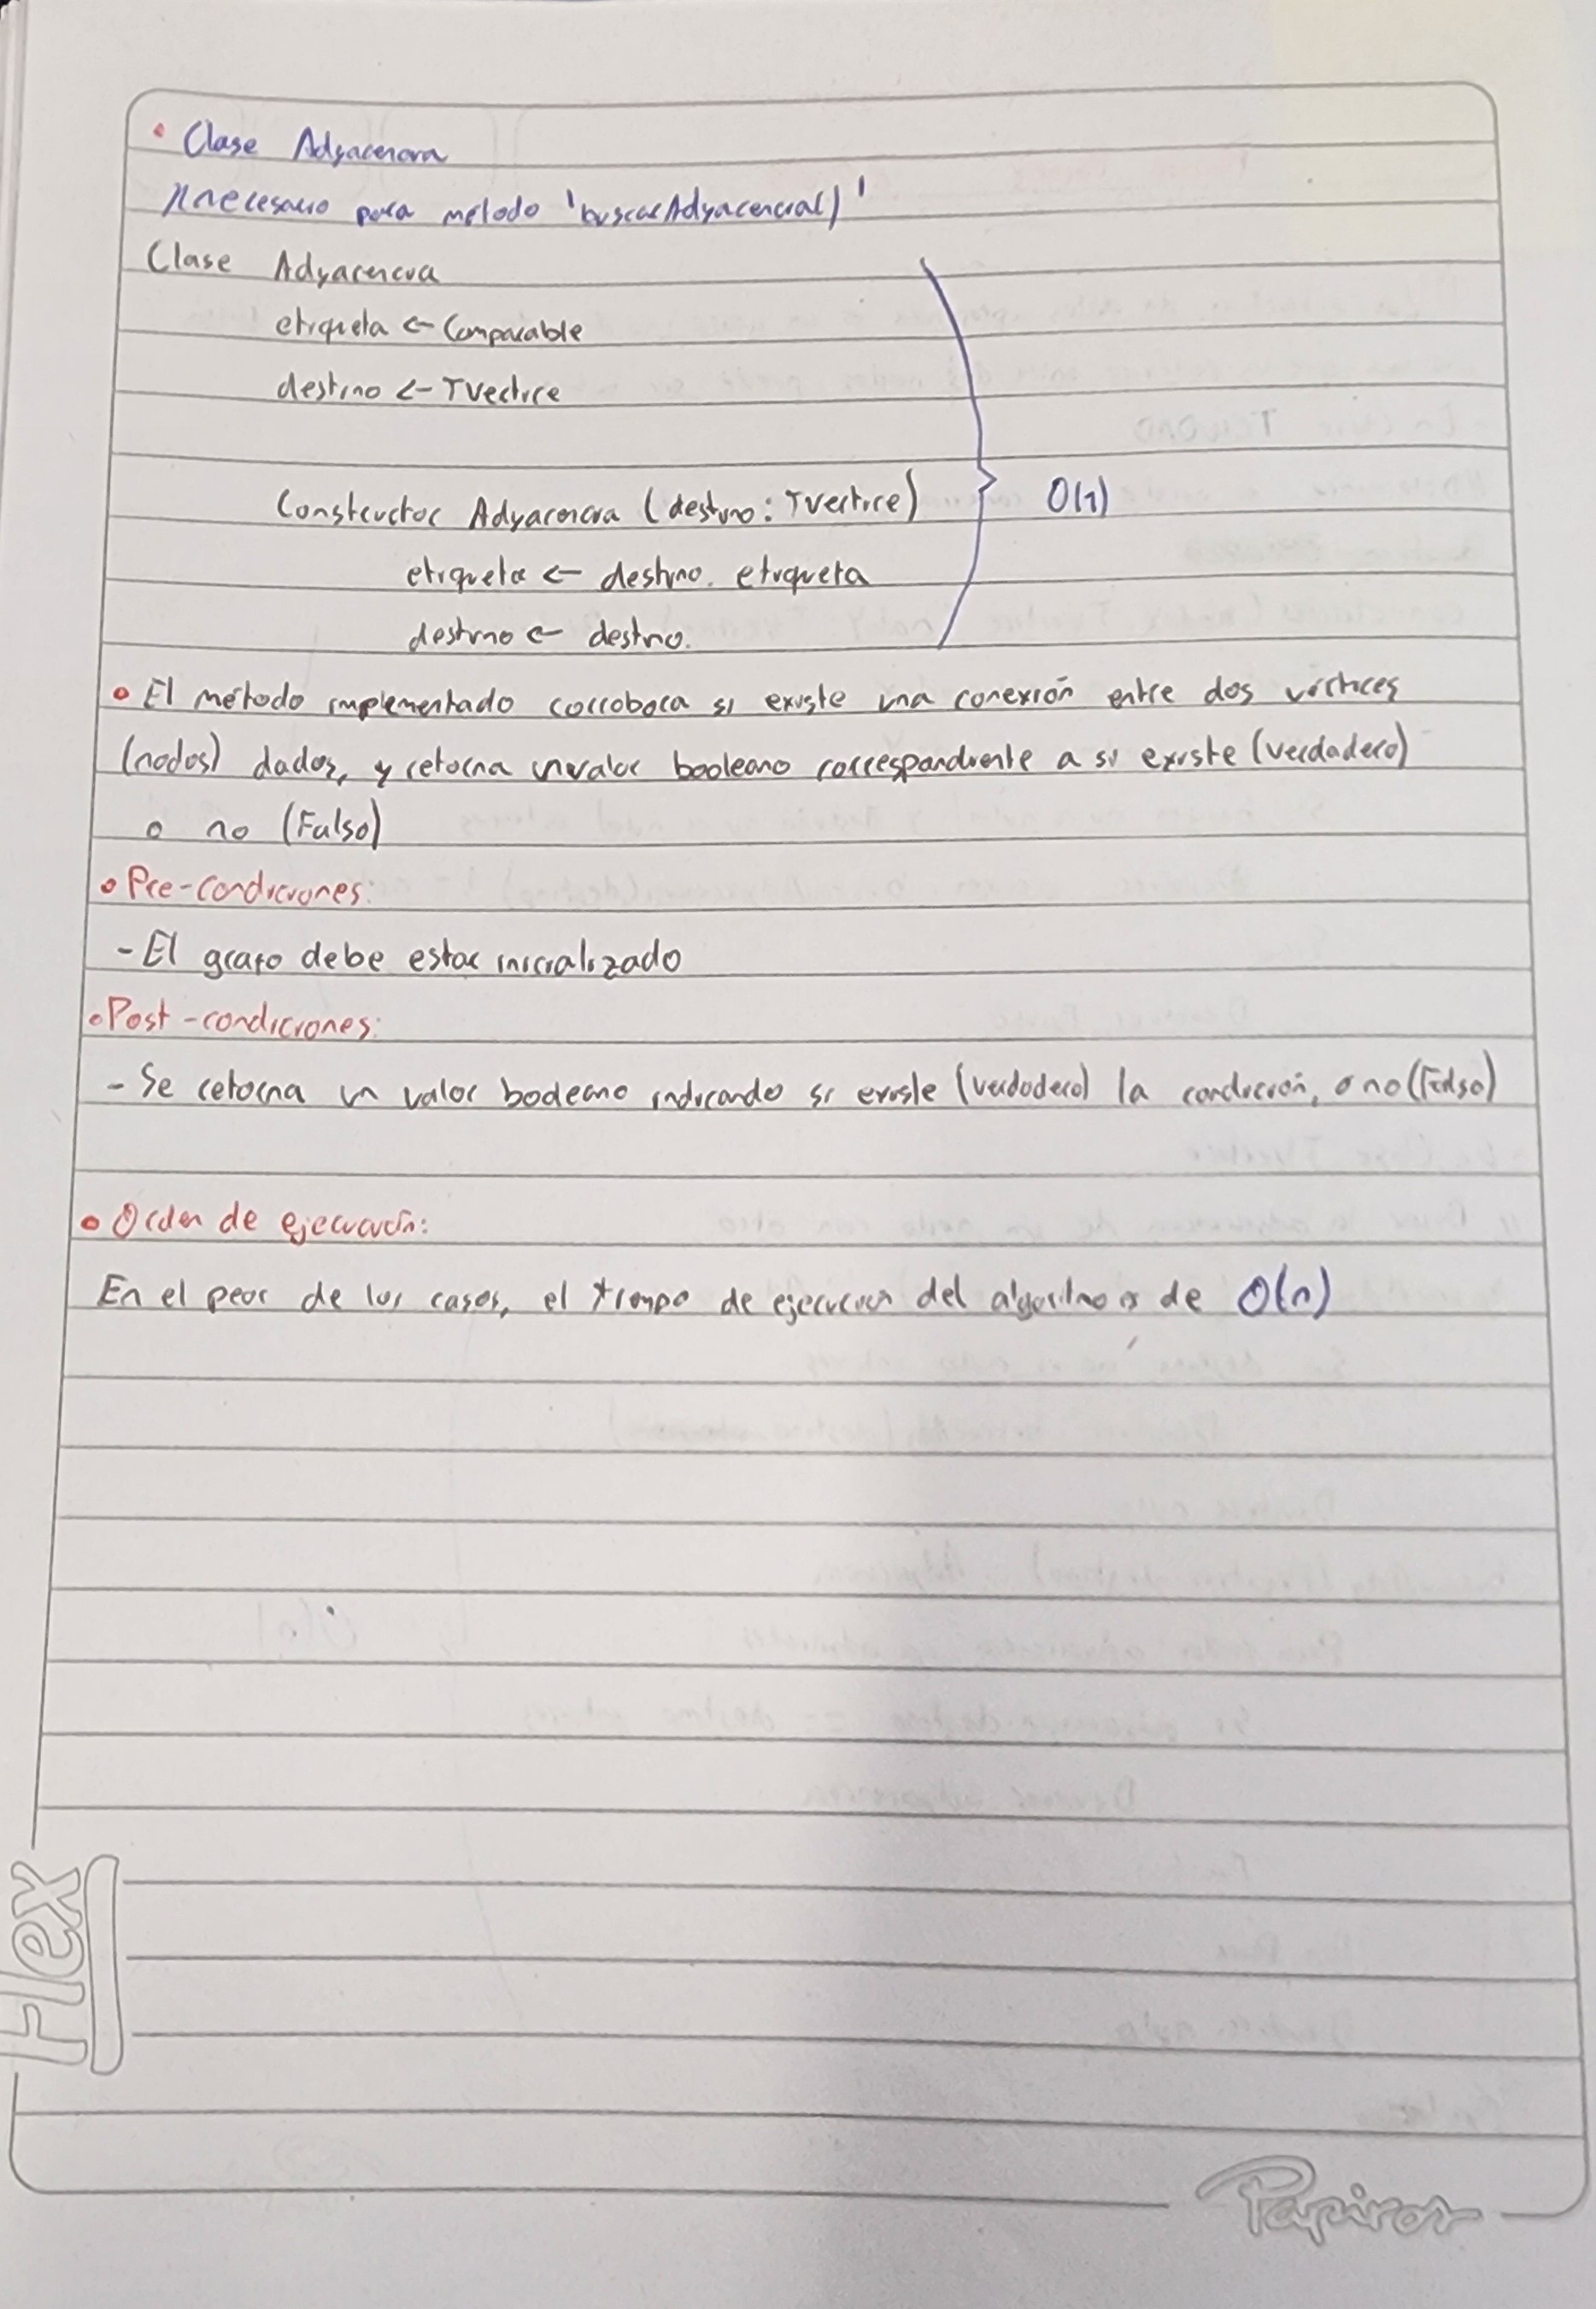 • Clase Adyacencia
// necesario para metodo 'buscarAdyacencia()'
Clase Adyacencia
etiqueta <- Comparable
destino <- TVertice
Constructor Adyacencia (destino: TVertice)
O(1)
etiqueta <- destino. etiqueta
destino <- destino.
• El método implementado corrobora si existe una conexión entre dos vértices
(nodos) dados, y retorna un valor booleano correspondiente a si existe (verdadero)
o no (Falso)
• Pre-condiciones:
- El grafo debe estar inicializado
• Post-condiciones:
- Se retorna un valor booleano indicando si existe (verdadero) la condición, o no (Falso)
• Orden de ejecución:
En el peor de los casos, el tiempo de ejecucion del algoritmo es de O(n)
Flex
Papiros